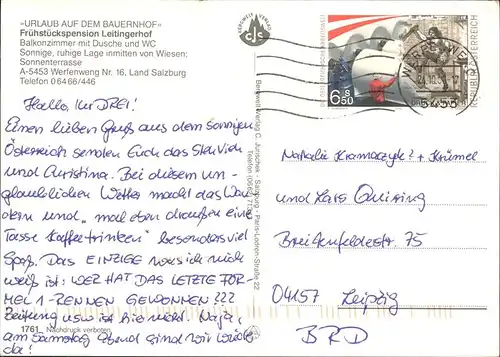 »URLAUB AUF DEM BAUERNHOF«
Frühstückspension Leitingerhof
Balkonzimmer mit Dusche und WC
Sonnige, ruhige Lage inmitten von Wiesen;
Sonnenterrasse
A-5453 Werfenweng Nr. 16, Land Salzburg
Telefon 06466/446
Hallo, Ihr DREI!
Einen lieben Gruß aus dem sonnigen
Österreich senden Euch das
und Christina. Bei diesem un-
glaublichen Wetter macht das Wan-
dern und "mal eben draußen eine
Tasse Kaffee trinken" besonders viel
Spaß. Das EINZIGE was ich nicht
weiß ist: WER HAT DAS LETZTE FOR-
MEL 1-RENNEN GEWONNEN???
Zeitung usw ist hier nicht. Naja,
am Samstag Abend sind wir wieder
da!
1761 Nachdruck verboten
BERGWELT VERLAG
cjs
Bergwelt Verlag C. Jurischek · Salzburg · Paris-Lodron-Straße 22
Telefon (0662) 71
6 S 50
REPUBLIK ÖSTERREICH
5453
Nathalie + Krümel
und Lars Quiring
Breitenfelderstr. 75
04157 Leipzig
BRD